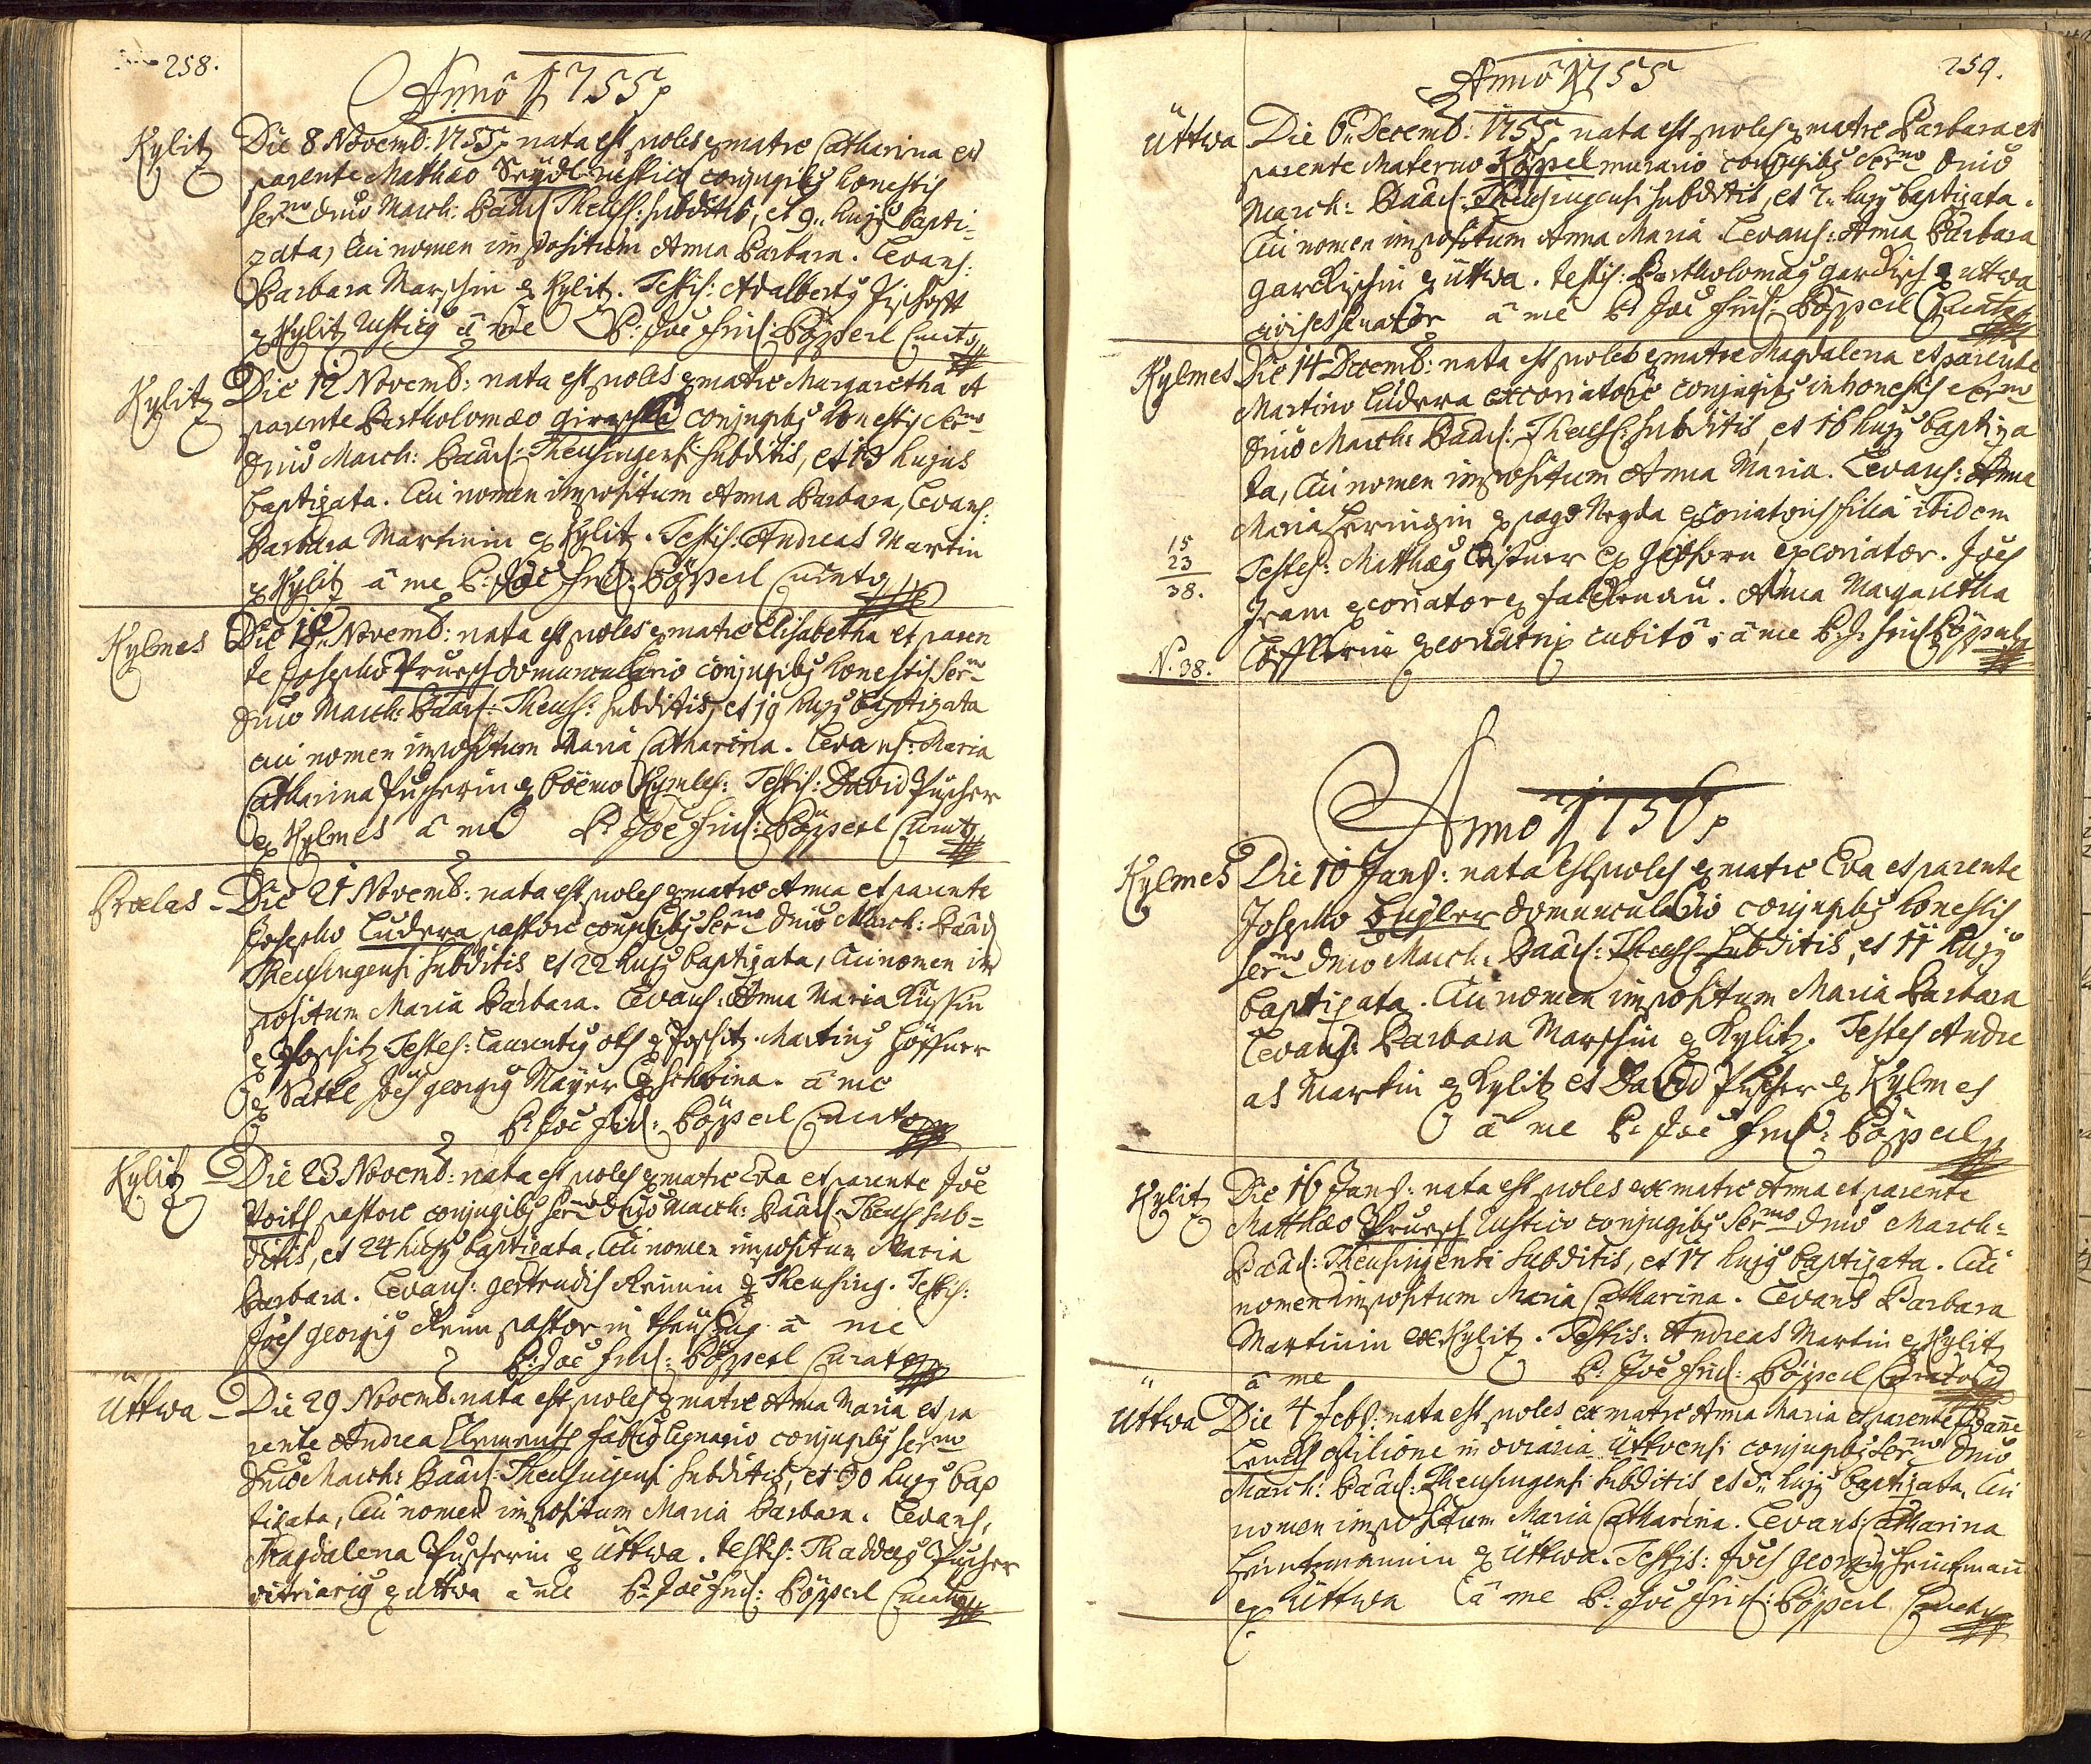 258.
Anno 1755
Kylitz Die 8 Novemb: 1755 nata est proles ex matre Catharina et
parente Mathæo Seydl rustico conjugibus honestis
Ser:mo dno March: Baad: Theus: subditis, et 9 hujus bapti-
zata, cui nomen impositum Anna Barbara. Levans:
Barbara Marschin ex Kylitz. Testis: Adalbertus Pischoff
ex Kylitz rusticus â me P: Joe Frid: Böpperl Curato
Kylitz Die 12 Novemb: nata est proles ex matre Margaretha et
parente Bartholomæo conjugibus honestis Ser:mo
dno March: Baad: Theusingensi subditis, et 13 hujus
baptizata. Cui nomen impositum Anna Barbara, Levans:
Barbara Martinin ex Kylitz. Testis: Andreas Martin
ex Kylitz â me P: Joe Frid: Böpperl Curato
Kylmes Die Novemb: nata est proles ex matre Elisabetha et paren
te Josepho Pruesch domunculario conjugibus honestis Ser:mo
dno March: Baad: Theus: subditis, et 19 hujus baptizata
cui nomen impositum Maria Catharina. Levans: Maria
Catharina Puscherin ex Testis: David Puscher
ex Kylmes â me P: Joe Frid: Böpperl Curato
Prælas Die 21 Novemb: nata est proles ex matre Anna et parente
Josepho Ludera pastore conjugibus Ser:mo dno March: Baad
Theusingensi subditis et 22 hujus baptizata, cui nomen im
positum Maria Barbara. Levans: Anna Maria
ex Poschitz Testes: Laurentius ex Poschitz. Martinus Höffner
ex Joes georgius Mayer ex â me
P: Joe Frid: Böpperl Curato
Kylitz Die 23 Novemb: nata est proles ex matre Eva et parente Joe
Voith pastore conjugibus Ser:mo dno March: Baad: Theus sub-
ditis, et 24 hujus baptizata, cui nomen impositum Maria
Barbara. Levans: gertrudis ex Theusing. Testis:
Joes georgius pastor in Theusing â me
P: Joe Frid: Böpperl Curato
Üttwa Die 29 Novemb: nata est proles ex matre Anna Maria et pa
rente Andrea Clement conjugibus Ser:mo
dno March: Baad: Theusingensi subditis, et 30 hujus bap
tizata, cui nomen impositum Maria Barbara. Levans,
Magdalena Puscherin ex Üttwa. testis: Thaddæus Puscher
vitriarius ex Uttwa â me P: Joe Frid: Böpperl Curato
259.
Anno 1755
Üttwa Die 6 Decemb: 1755 nata est proles ex matre Barbara et
parente Materno Köppel murario conjugibus Ser:mo dno
March: Baad: Theusingensi subditis, et 7 hujus baptizata.
Cui nomen impositum Anna Maria. Levans: Anna Barbara
ex Üttwa. testis: Bartholomæus ex Uttwa
â me P: Joe Frid: Böpperl Curato
Kylmes Die 14 Decemb: nata est proles ex matre Magdalena et parente
Martino Ludera excoriatore conjugibus inhonestis Ser:mo
dno March: Baad: Theus: subditis, et 16 hujus baptiza
ta, cui nomen impositum Anna Maria. Levans: Anna
Maria ex pago excoriatoris filia ibidem
Testes: Matthæus ex excoriator. Joes
excoriator ex Falckenau. Anna Margaretha
Löfflerin ex â me P. J. Frid Böpperl
15
23
38.
N. 38.
Anno 1756
Kylmes Die 10 Janu: nata est proles ex matre Eva et parente
Josepho domunculario conjugibus honestis
Ser:mo dno March: Baad: Theus: subditis, et 11 hujus
baptizata. Cui nomen impositum Maria Barbara
Levans Barbara Marschin ex Kylitz. Testes Andre
as Martin ex Kylitz et David Puscher ex Kylmes
â me P: Joe Frid: Böpperl
Kylitz Die 16 Janu: nata est proles ex matre Anna et parente
Matthæo Pruesch rustico conjugibus Ser:mo dno March:
Baad: Theusingensi subditis, et 17 hujus baptizata. Cui
nomen impositum Maria Catharina. Levans Barbara
Martinin ex Kylitz. Testis: Andreas Martin ex Kylitz
â me P: Joe Frid: Böpperl Curato
Uttwa Die 4 Feb: nata est proles ex matre Anna Maria et parente Joanne
opilione in oviaria Üttvensi conjugibus Ser:mo dno
March: Baad: Theusingensi subditis et 5 hujus baptizata. Cui
nomen impositum Maria Catharina. Levans Catharina
Heintzmannin ex Üttwa. Testis: Joes georgius
ex Üttwa â me P: Joe Frid: Böpperl Curato